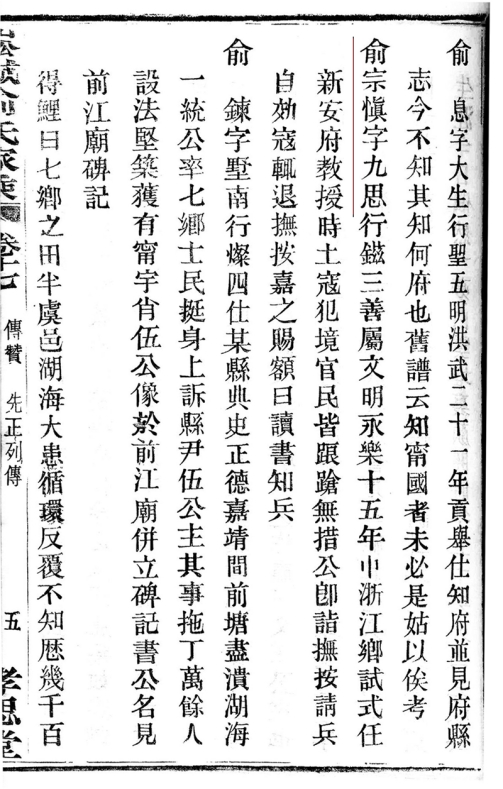 俞 息字大生行聖五明洪武二十一年貢舉仕知府並見府縣
志今不知其知何府也舊譜云知甯國者未必是姑以俟考
俞宗愼字九思行鎡三善屬文明永樂十五年中浙江鄉試式任
新安府教授時土寇犯境官民皆踉蹌無措公卽詣撫按請兵
自効寇輒退撫按嘉之賜額曰讀書知兵
俞 鍊字墅南行燦四仕某縣典史正德嘉靖間前塘盡潰湖海
一統公率七鄉士民挺身上訴縣尹伍公主其事拖丁萬餘人
設法堅築獲有甯宇肖伍公像於前江廟併立碑記書公名見
前江廟碑記
得鯉曰七鄉之田半虞邑湖海大患循環反覆不知歷幾千百
俞氏家乘 卷十七 傳贊 先正列傳 五 孝思堂